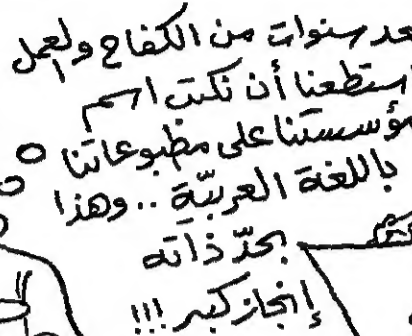 بعد سنوات من الكفاح والعمل
استطعنا أن نكتب اسم
مؤسستنا على مطبوعاتنا
باللغة العربيّة .. وهذا
بحدّ ذاته
إنجاز كبير !!!